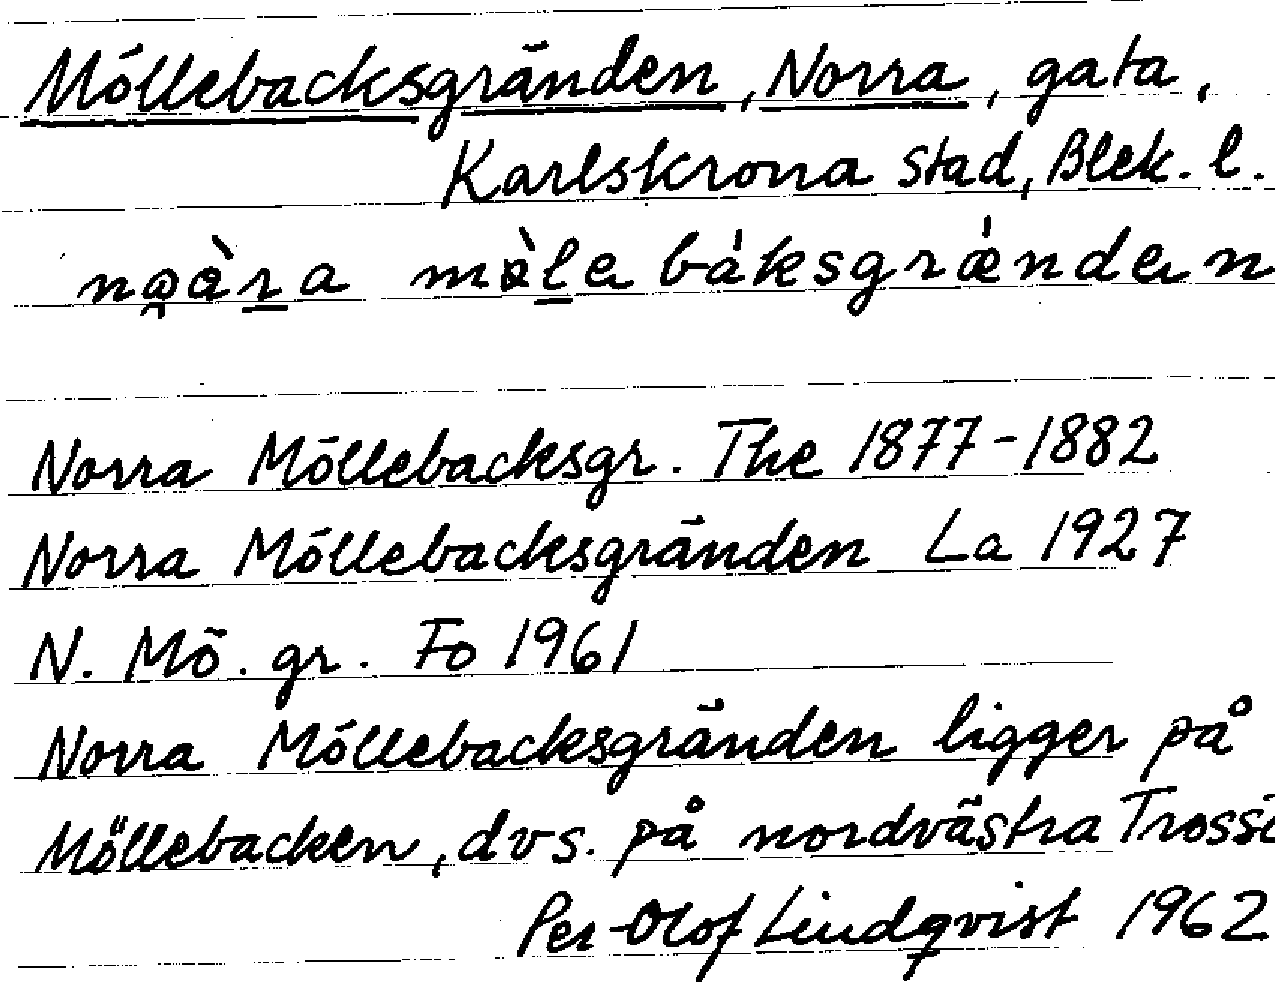 Möllebacksgränden, Norra, gata,
Karlskrona stad, Blek. l.
Norra Möllebacksgr. The 1877-1882
Norra Möllebacksgränden La 1927
N. Mö. gr. Fo 1961
Norra Möllebacksgränden ligger på
Möllebacken, dvs. på nordvästra Trossö
Per-Olof Lindqvist 1962